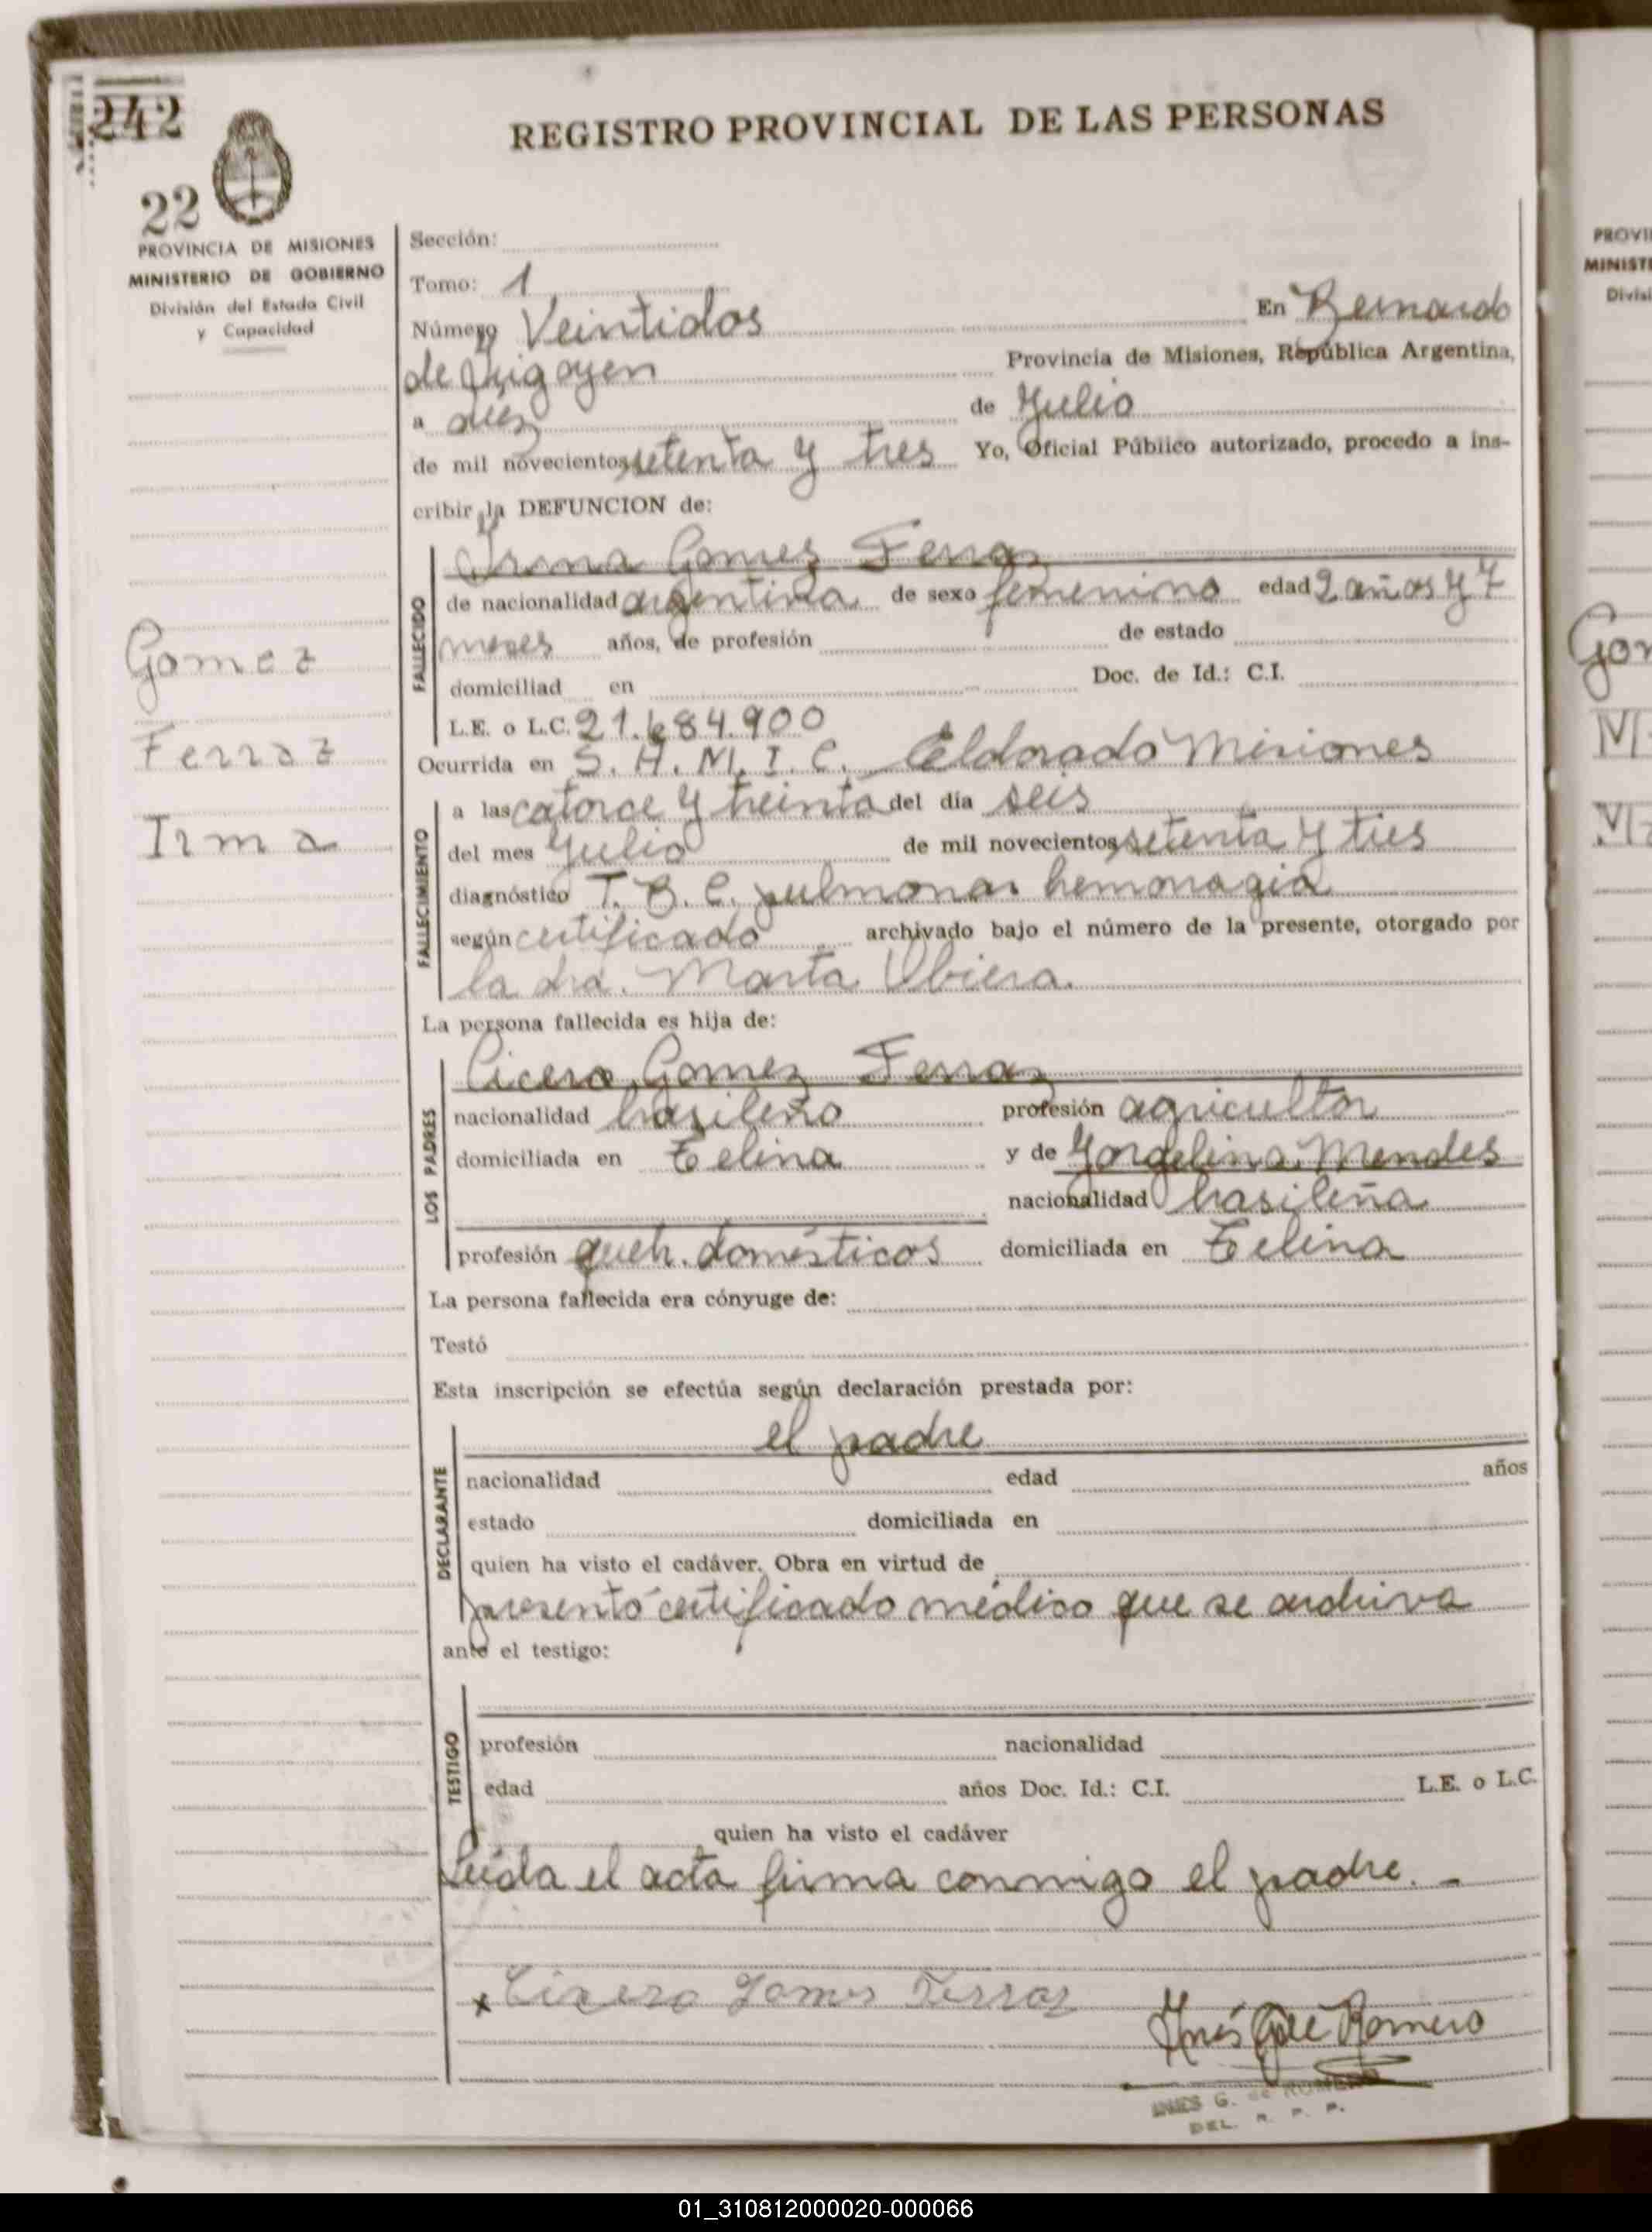 242
REGISTRO PROVINCIAL DE LAS PERSONAS
22
PROVINCIA DE MISIONES
MINISTERIO DE GOBIERNO
División del Estado Civil
y Capacidad
Sección:
Tomo: 1
Número Veintidos En Bernardo
de Yrigoyen Provincia de Misiones, República Argentina,
a diez de Julio
de mil novecientos setenta y tres Yo, Oficial Público autorizado, procedo a ins-
cribir la DEFUNCION de:
FALLECIDO
Irma Gomez Ferraz
de nacionalidad argentina de sexo femenino edad 2 años y 7
meses años, de profesión de estado
domiciliad en Doc. de Id.: C.I.
L.E. o L.C. 21.684.900
Gomez
Ferraz
Irma
Ocurrida en S. A. M. I. C. Eldorado Misiones
FALLECIMIENTO
a las catorce y treinta del día seis
del mes Julio de mil novecientos setenta y tres
diagnóstico T. B. C. pulmonar hemorragia
según certificado archivado bajo el número de la presente, otorgado por
la dra. Marta Ubiera.
La persona fallecida es hija de:
LOS PADRES
Cicero Gomez Ferraz
nacionalidad brasileño profesión agricultor
domiciliada en Telina y de Jorgelina Mendes
nacionalidad brasileña
profesión queh. domésticos domiciliada en Telina
La persona fallecida era cónyuge de:
Testó
Esta inscripción se efectúa según declaración prestada por:
DECLARANTE
el padre
nacionalidad edad años
estado domiciliada en
quien ha visto el cadáver. Obra en virtud de
presentó certificado médico que se archiva
ante el testigo:
TESTIGO
profesión nacionalidad
edad años Doc. Id.: C.I. L.E. o L.C.
quien ha visto el cadáver
Leída el acta firma conmigo el padre. -
x Cicero Gomes Ferraz
Inés G de Romero
INES G. de ROMERO
DEL. R. P. P.
PROVI
MINIST
Divisi
Gor
01_310812000020-000066